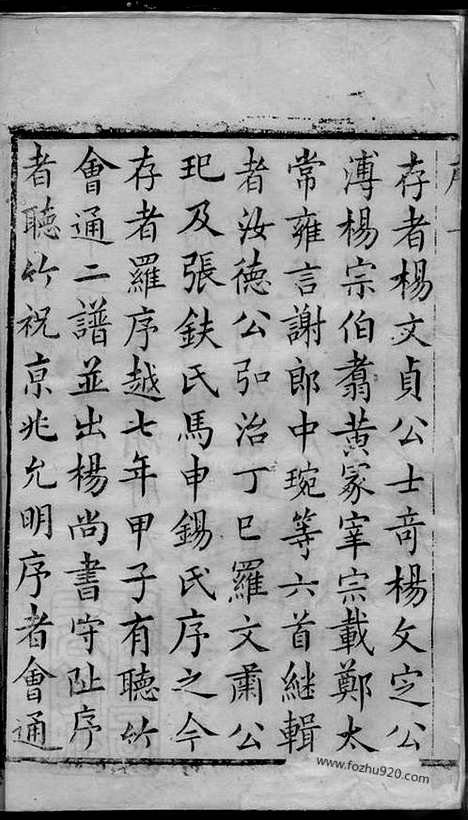 存者楊文貞公士奇楊文定公
溥楊宗伯翥黃冢宰宗載鄭太
常雍言謝郎中琬等六首繼輯
者汝德公弘治丁巳羅文肅公
玘及張鈇氏馬申錫氏序之今
存者羅序越七年甲子有聽竹
會通二譜並出楊尚書守阯序
者聽竹祝京兆允明序者會通
www.fozhu920.com